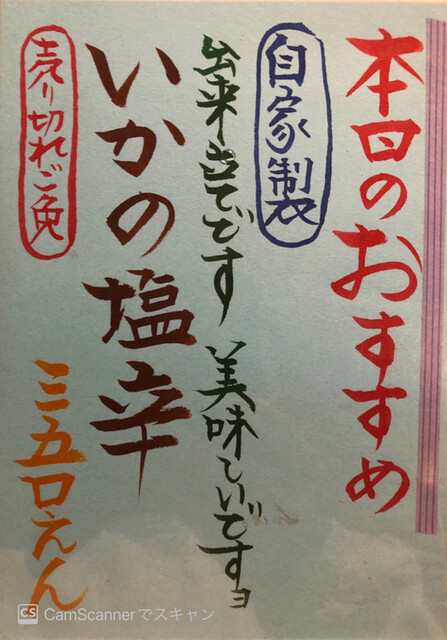 本日のおすすめ
自家製
出来立てです 美味しいですョ
いかの塩辛
売り切れご免
三五〇えん
CS CamScannerでスキャン